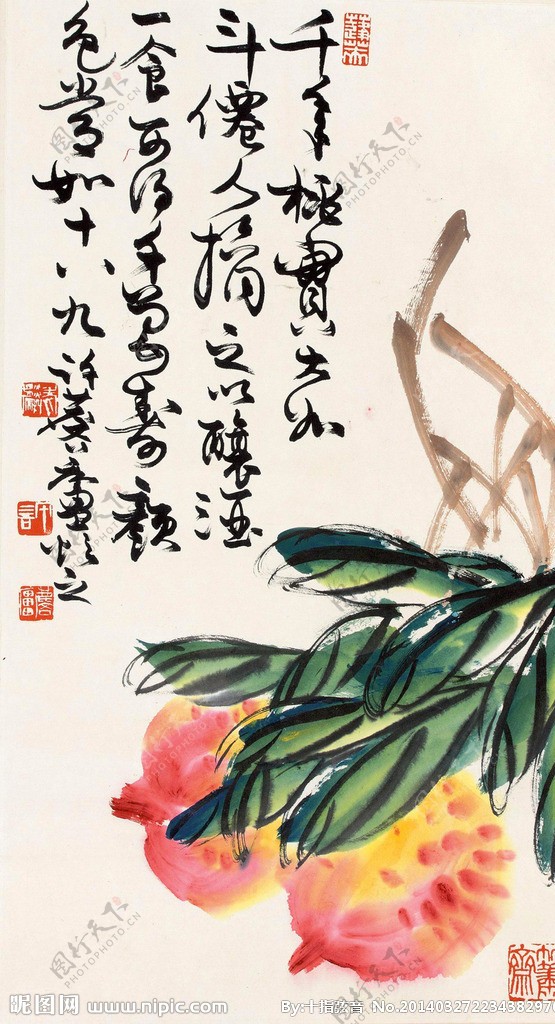 千年桃實大如
斗僊人摘之以釀酒
一食可得千萬壽顏
色常如十八九許麐廬頌之
图行天下
PHOTOPHOTO.CN
昵图网 www.nipic.com
By:十指弦音 No.2014032722343829